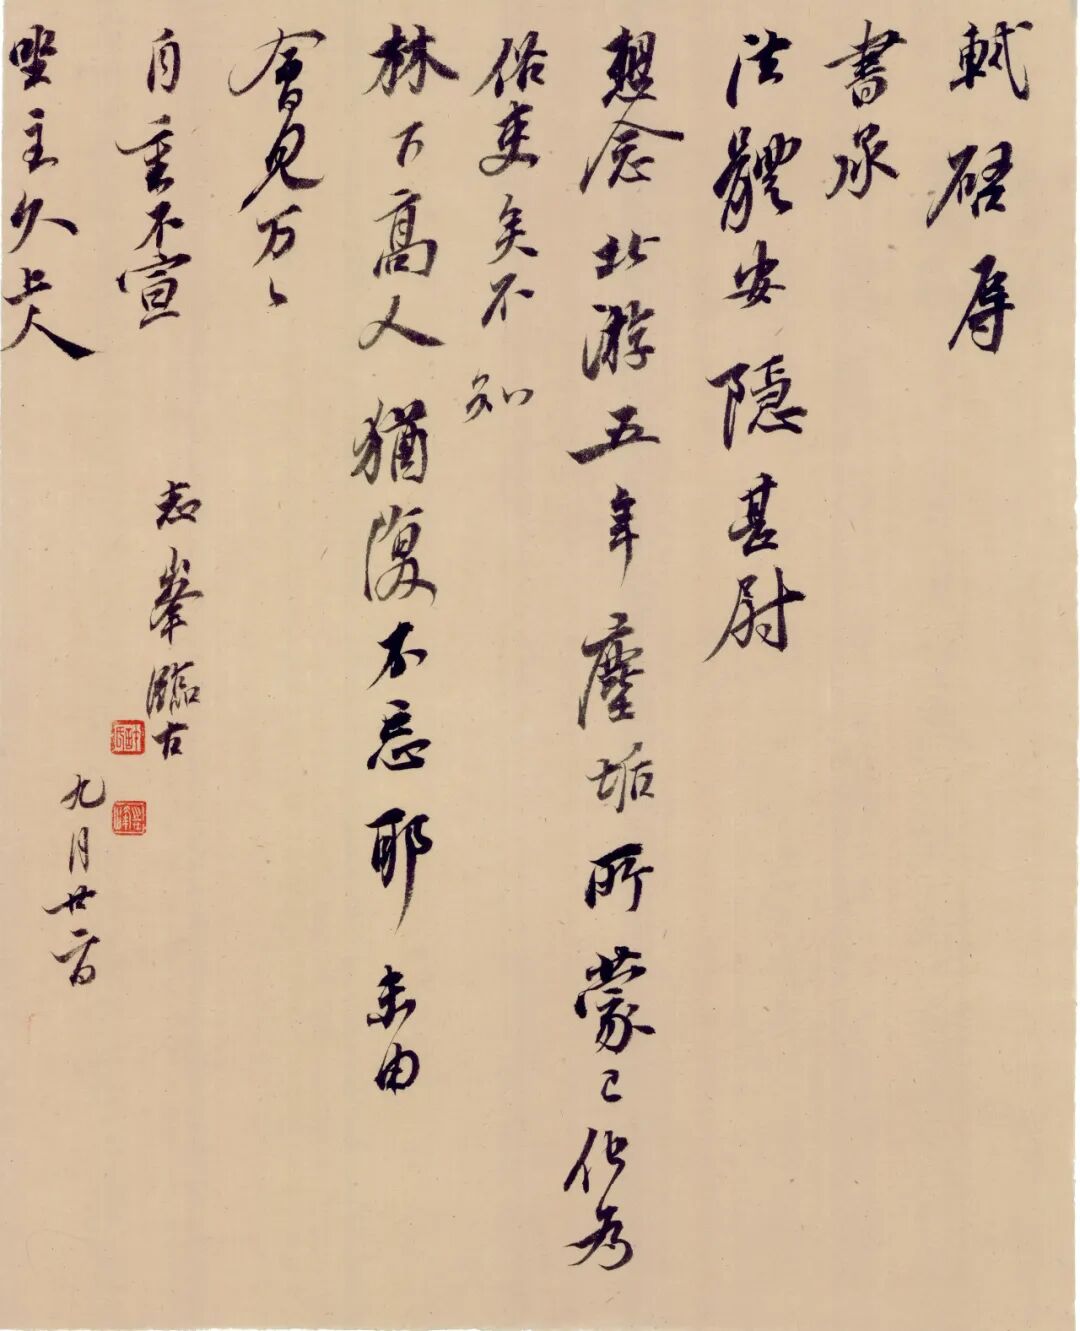 軾啓辱
書承
法體安隱甚尉
想念北游五年塵垢所蒙已化為
俗吏矣不知
林下高人猶復不忘耶未由
會見万〻
自重不宣
坐主久上人
志峯臨古
九月廿二日